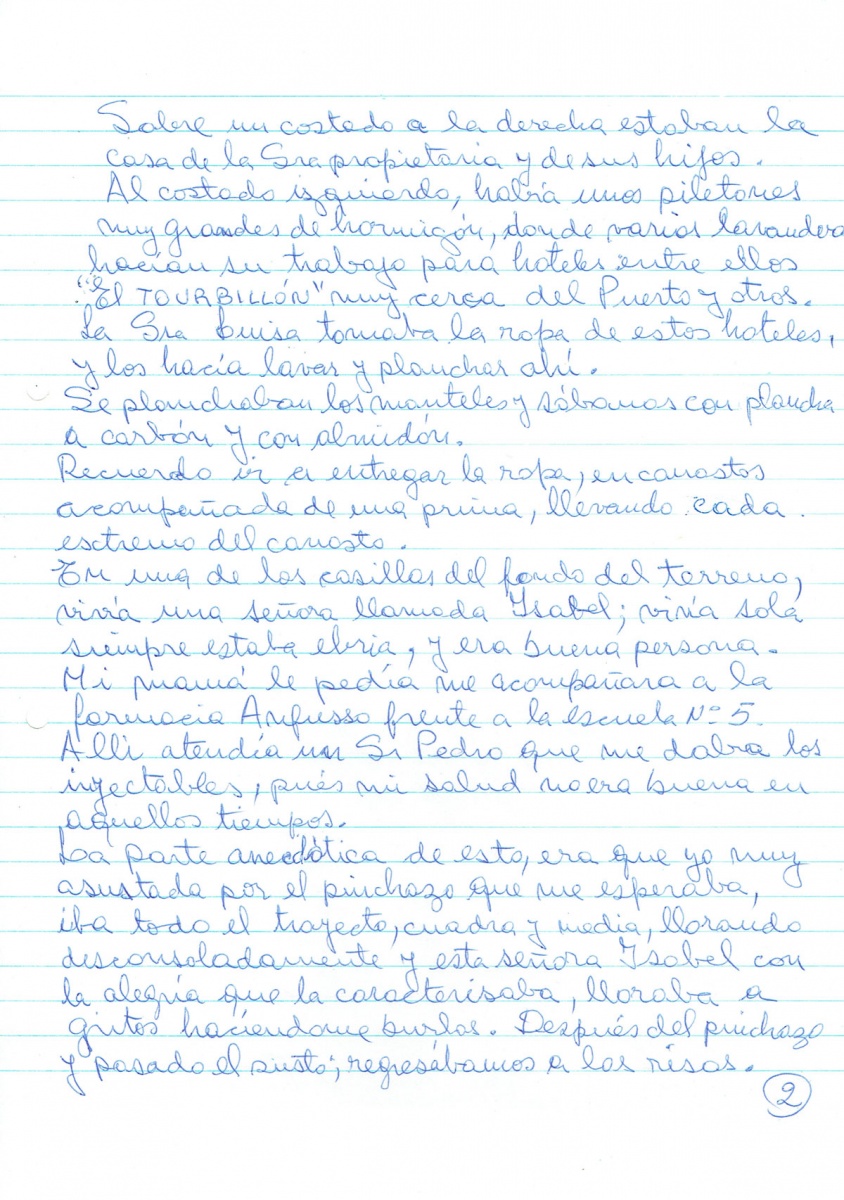 Sobre un costado a la derecha estaban la
casa de la Sra propietaria y de sus hijos.
Al costado izquierdo, había unos piletones
muy grandes de hormigón, donde varias lavandera
hacían su trabajo para hoteles entre ellos
"El TOURBILLÓN" muy cerca del Puerto y otros.
La Sra Luisa tomaba la ropa de estos hoteles,
y los hacía lavar y planchar ahí.
Se planchaban los manteles y sábanas con plancha
a carbón y con almidón.
Recuerdo ir a entregar la ropa, en canastos
acompañada de una prima, llevando cada
extremo del canasto.
En una de las casillas del fondo del terreno,
vivía una señora llamada Ysabel; vivía sola
siempre estaba ebria, y era buena persona.
Mi mamá le pedía me acompañara a la
farmacia Anfusso frente a la escuela Nº 5.
Alli atendía un Sr Pedro que me daba los
inyectables, pués mi salud no era buena en
aquellos tiempos.
La parte anecdótica de esto, era que yo muy
asustada por el pinchazo que me esperaba,
iba todo el trayecto, cuadra y media, llorando
desconsoladamente y esta señora Ysabel con
la alegría que la caracterisaba, lloraba a
gritos haciendome burlas. Después del pinchazo
y pasado el susto; regresábamos a las risas.
2